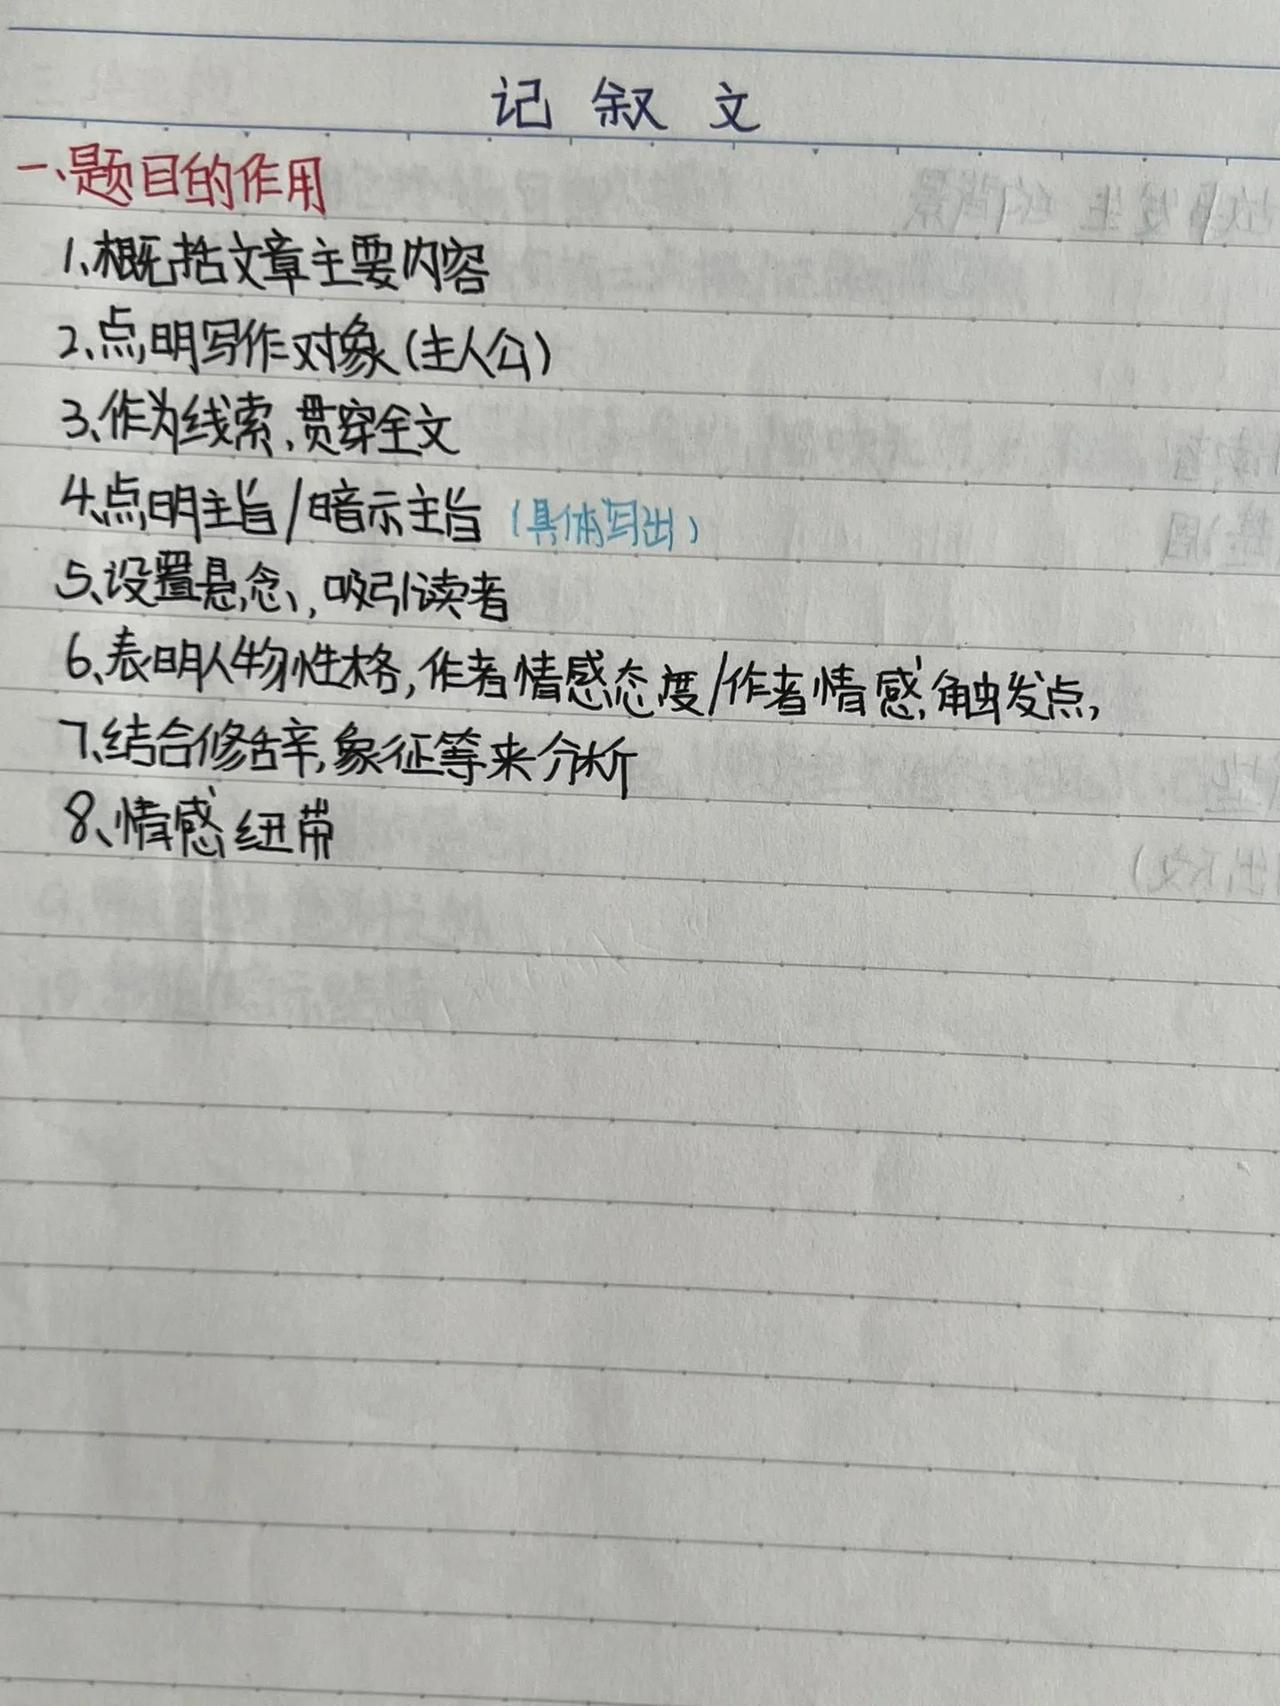 记叙文
一、题目的作用
1、概括文章主要内容
2、点明写作对象(主人公)
3、作为线索,贯穿全文
4、点明主旨/暗示主旨(具体写出)
5、设置悬念,吸引读者
6、表明人物性格,作者情感态度/作者情感触发点,
7、结合修辞,象征等来分析
8、情感纽带